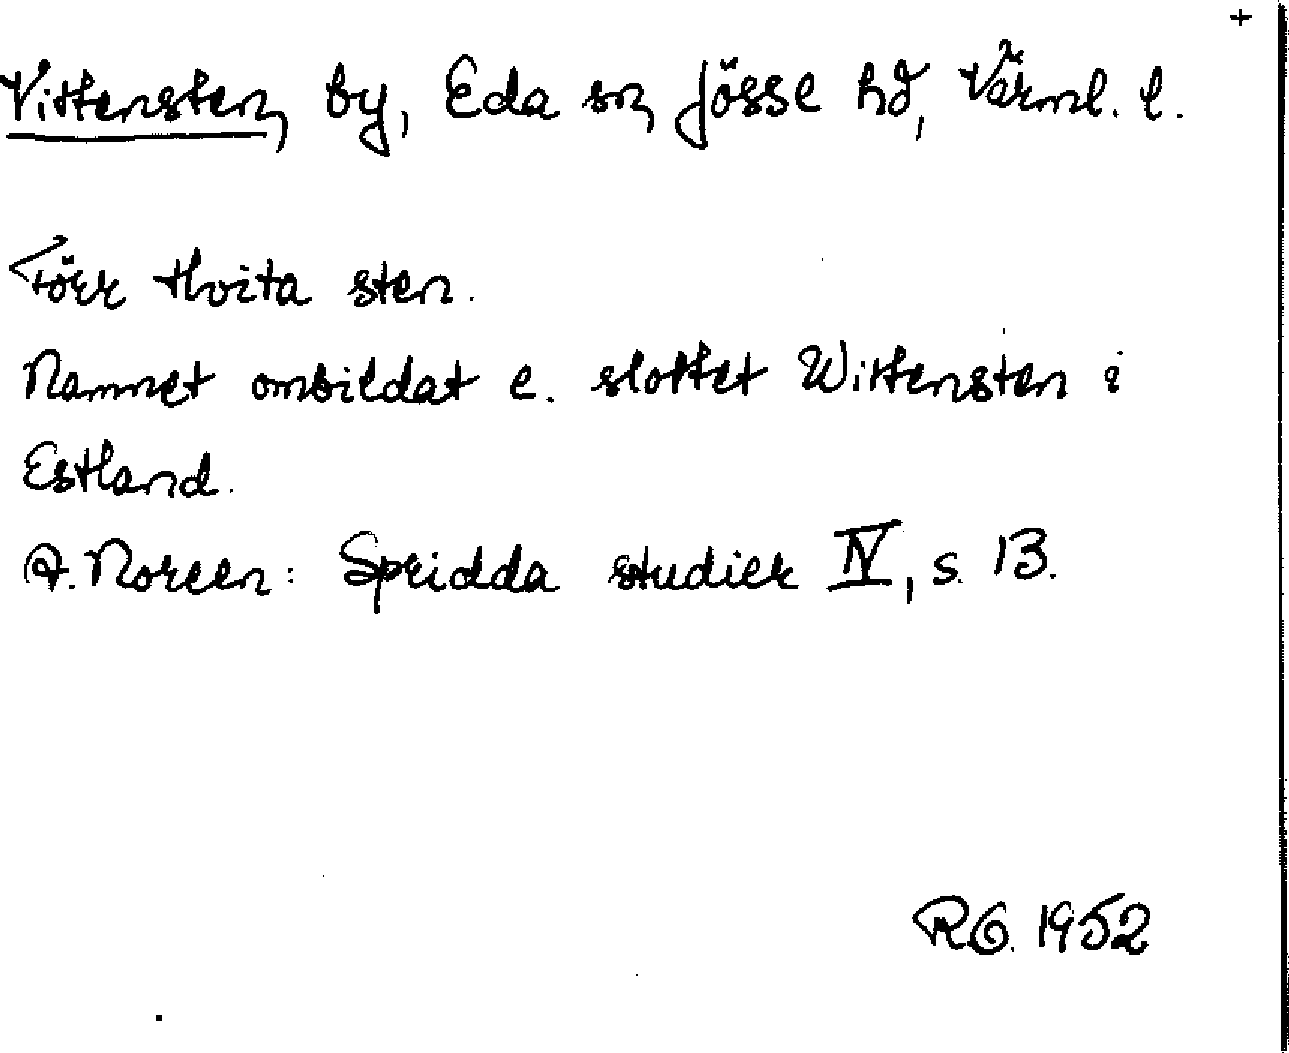 +
Vittensten, by, Eda sn, Jösse hd, Värml. l.
Förr Hvita sten.
Namnet ombildat e. slottet Wittensten i
Estland.
A. Noreen: Spridda studier IV, s. 13.
RG. 1952